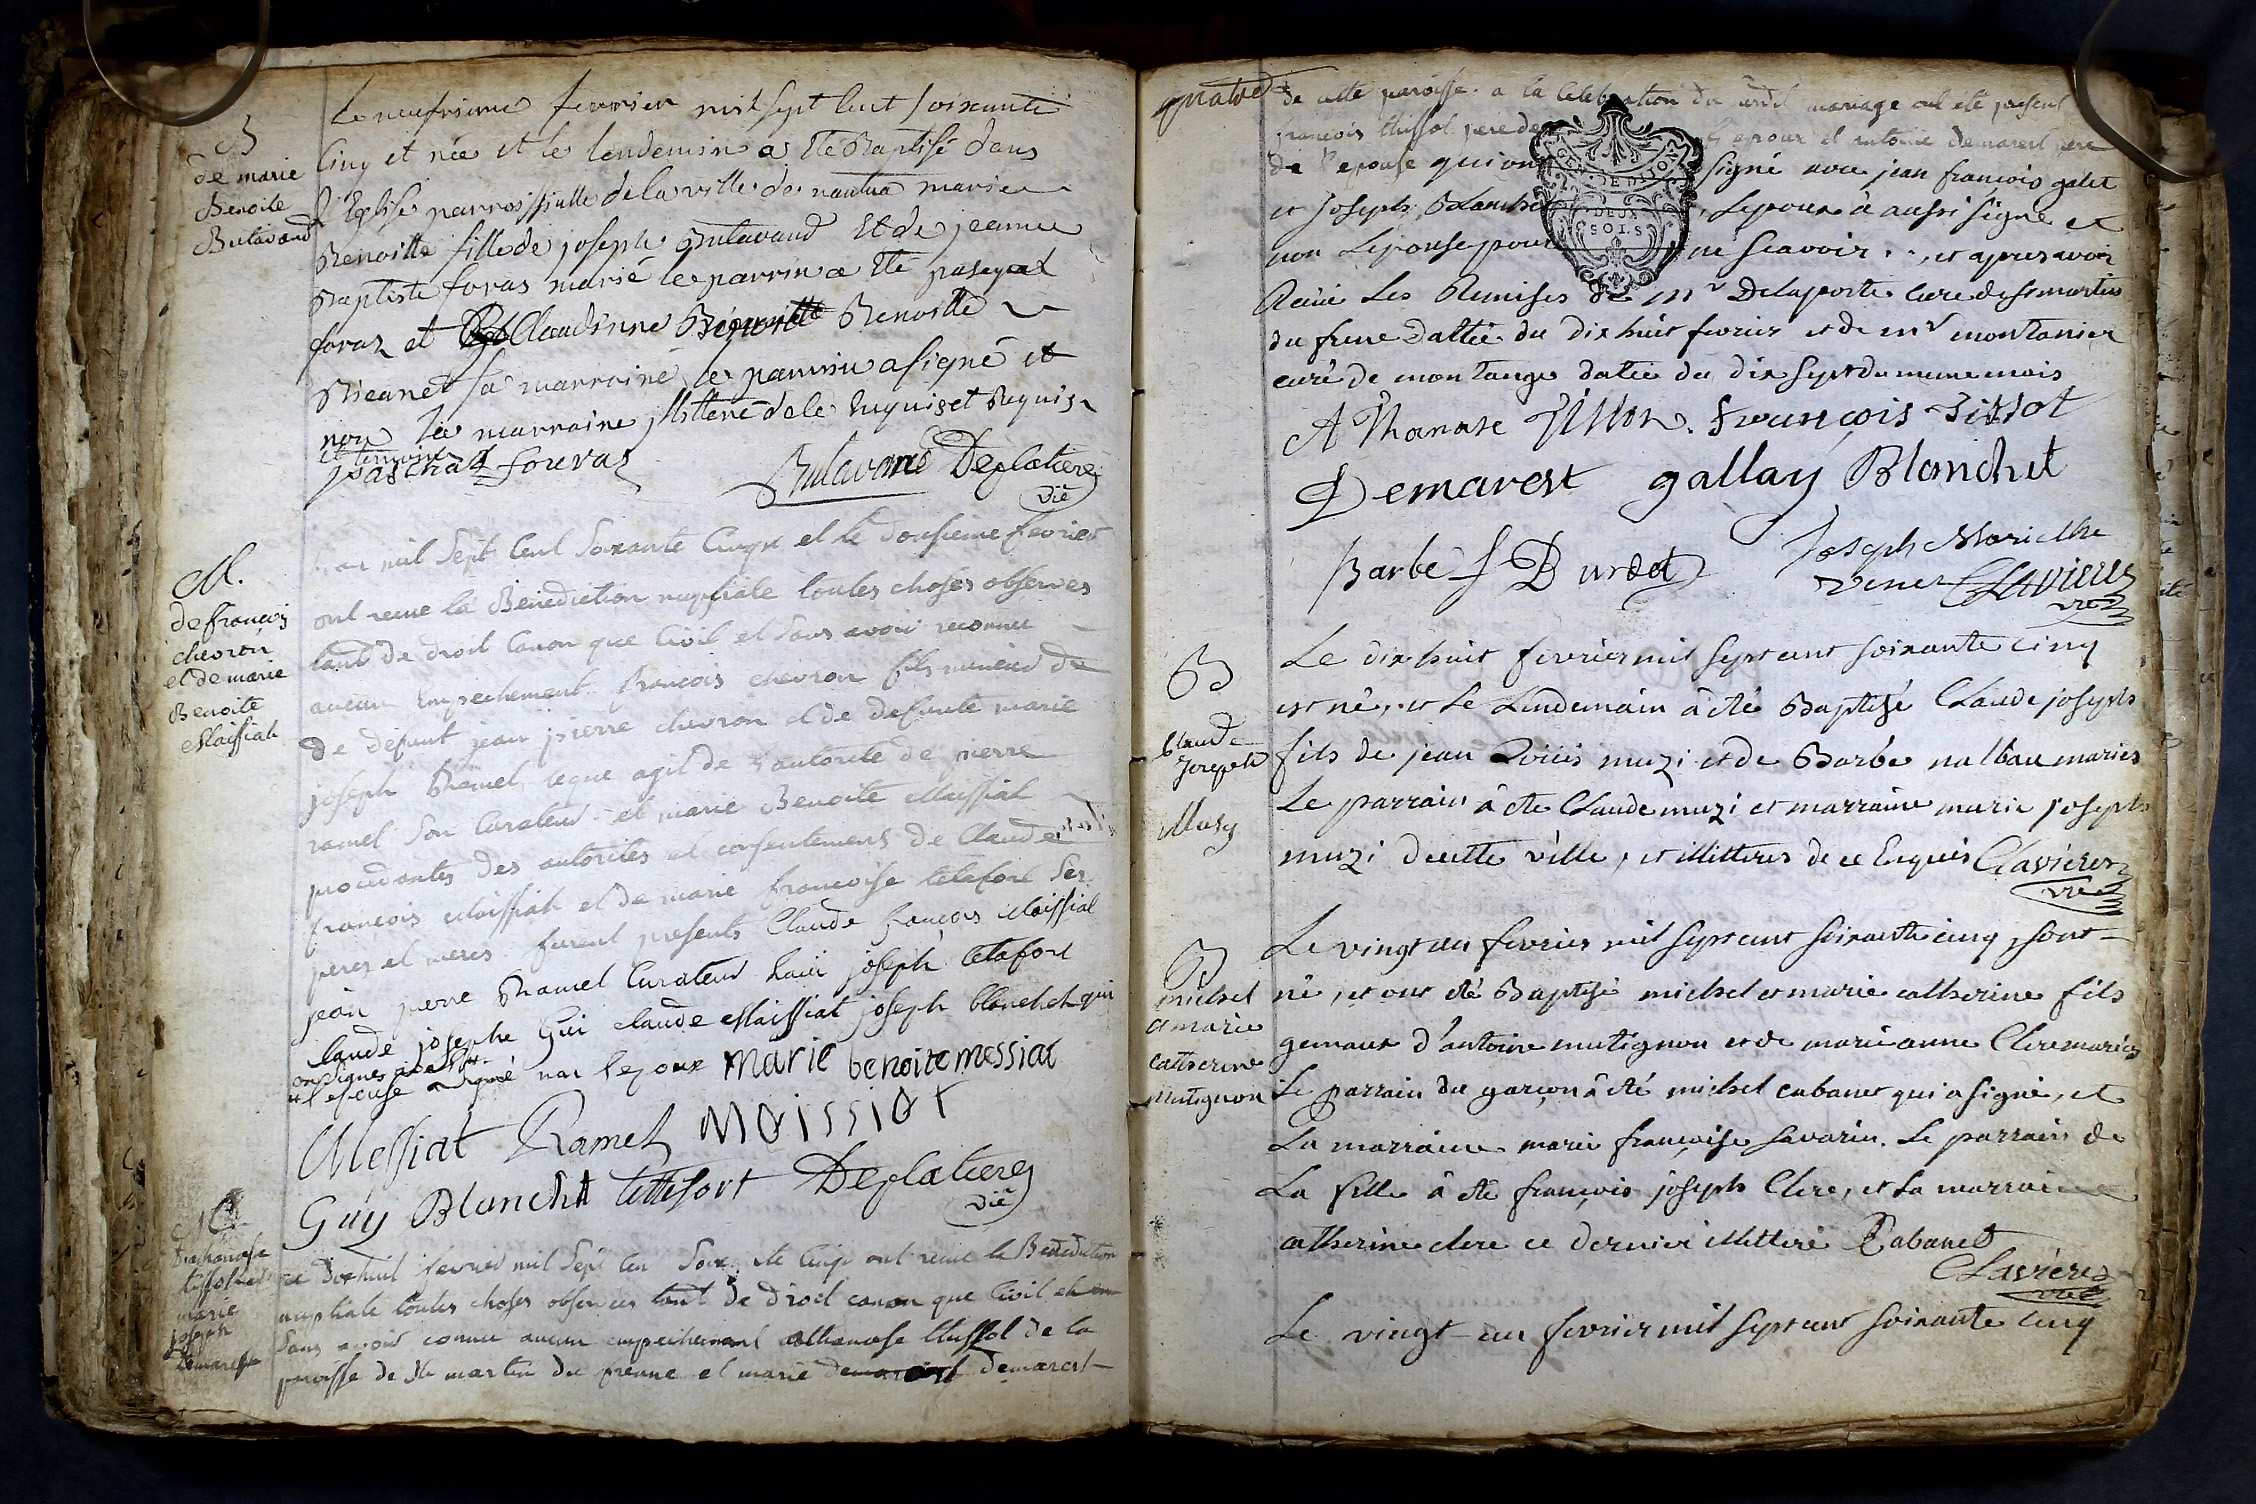 B
de marie
Benoite
Butavand
Le neufvieme fevrier mil sept cent soixante
Cinq et née et le lendemin a ete Baptisé dans
l'Eglise parroissialle de la ville de nantua marie
Benoitte fille de joseph Butavand et de jeanne
Baptiste foras marié le parrin a ete pasqual
foraz et Claudinne Benoitte
Bieanet sa marraine, le parrin a signé et
non la marraine illitteré de le Enquis et Requis
Paschal fouraz Butavand Deplatieres
vic
M.
de françois
chevron
et de marie
Benoite
Maissiat
mil sept cent soixante Cinq et le dousieme fevrier
ont recue la Benediction nuptiale toutes choses observes
tant de droit Canon que Civil et sans avoir reconnu
aucun Empechement françois chevron fils mineur de
de defunt jean pierre chevron et de defunte marie
joseph Ramel, leque agit de l'autorite de pierre
ramel son Curateur et marie Benoite Maissiat
procedantes des autorites et consentements de Claude
francois Maissiat et de marie francoise tetafort ses
peres et meres. furent presents Claude françois Maissiat
jean pierre Ramel Curateur joseph tetafort
Claude josephe Gui claude Maissiat joseph blanchet qui
ont signes
et l'epeuse a signé non lepoux marie benoite messiat
Messiat Ramel Maissiat
Guy Blanchet tettefort Deplatieres
vic
M
D'athanase
tissot et
marie
joseph
demarest
Le Dixhuit fevrier mil sept cen Soixante Cinq ont recue la Benediction
nuptiale toutes choses observees tant de droit canon que Civil et
sans avoir connu aucun empechement athanase thissot de la
paroisse de St martin du frenne et marie demarest
de cette paroisse. a la Celebration du mariage ont ete present
françois thissot pere de l'epoux et antoine demarest pere
de l'epouse qui ont signé avec jean françois galet
et joseph Blanchet, Lepoux a aussi signé et
non Lepouse pour ne scavoir.., et apres avoir
Recûe Les Remises de Mr Delaporte cure de st martin
du frene dattée du Dix huit fevrier et de mr montanier
curé de montange datée du dix sept du meme mois
GEN. DE DIJON
DEUX
SOLS
Athanase Tissot. François Tissot
Demarest gallay Blanchet
Barbe J Burdet Joseph Marie
Clavieres
vic
B
Claude
Joseph
Musy
Le dixhuit fevrier mil sept cent soixante cinq
est né, et Le Lendemain â été Baptisé Claude joseph
fils de jean Louis muzi et de Barbe nalbau mariés
Le parrain â été Claude muzi et marraine marie joseph
muzi de cette ville, et illitteres de ce Enquis Clavieres
vic
B
michel
et marie
catherine
Matignon
Le vingt un fevrier mil sept cent soixante cinq, sont
né, et ont eté Baptisé michel et marie catherine fils
gemaux d'antoine mutignon et de marie anne Clere mariés
Le parrain du garçon â été michel cabanet qui a signé, et
La marraine marie françoise savarin. Le parrain de
La fille â été françois joseph Clere, et La marraine
catherine clere ce dernier illitteré Cabanet
Clavieres
vic
Le vingt un fevrier mil sept cent soixante cinq